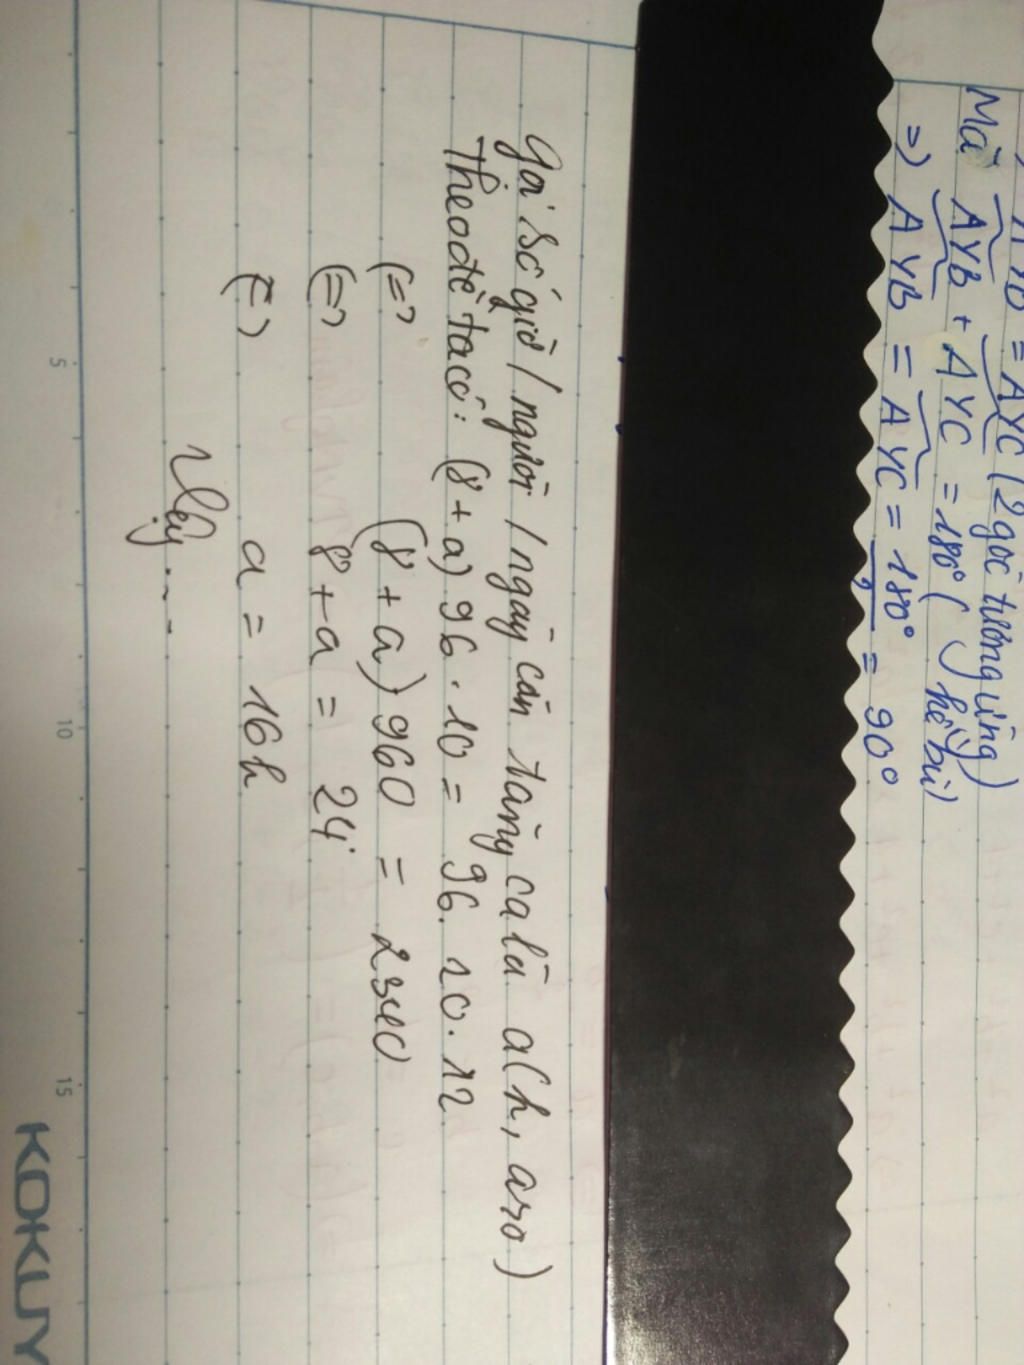 = AYC (2 góc tương ứng)
Mà AYB + AYC = 180° ( kề bù)
=> AYB = AYC = 180°/2 = 90°
Gọi số giờ / người / ngày cần tăng ca là a(h, a>0)
Theo đề ta có: (8 + a) 96 . 10 = 96 . 20 . 12
(=> (8 + a) 960 = 23040
(=> 8 + a = 24
(=) a = 16h
Vậy ...
5
10
15
KOKUY